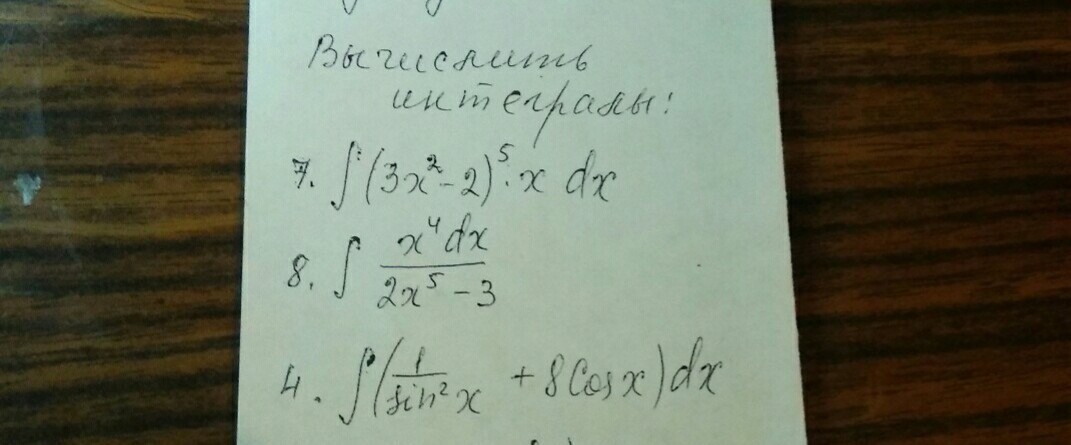 Вычислить
интегралы:
7. ∫(3x²-2)⁵·x dx
8. ∫ x⁴dx / 2x⁵-3
4. ∫(1/sin²x + 8cosx)dx